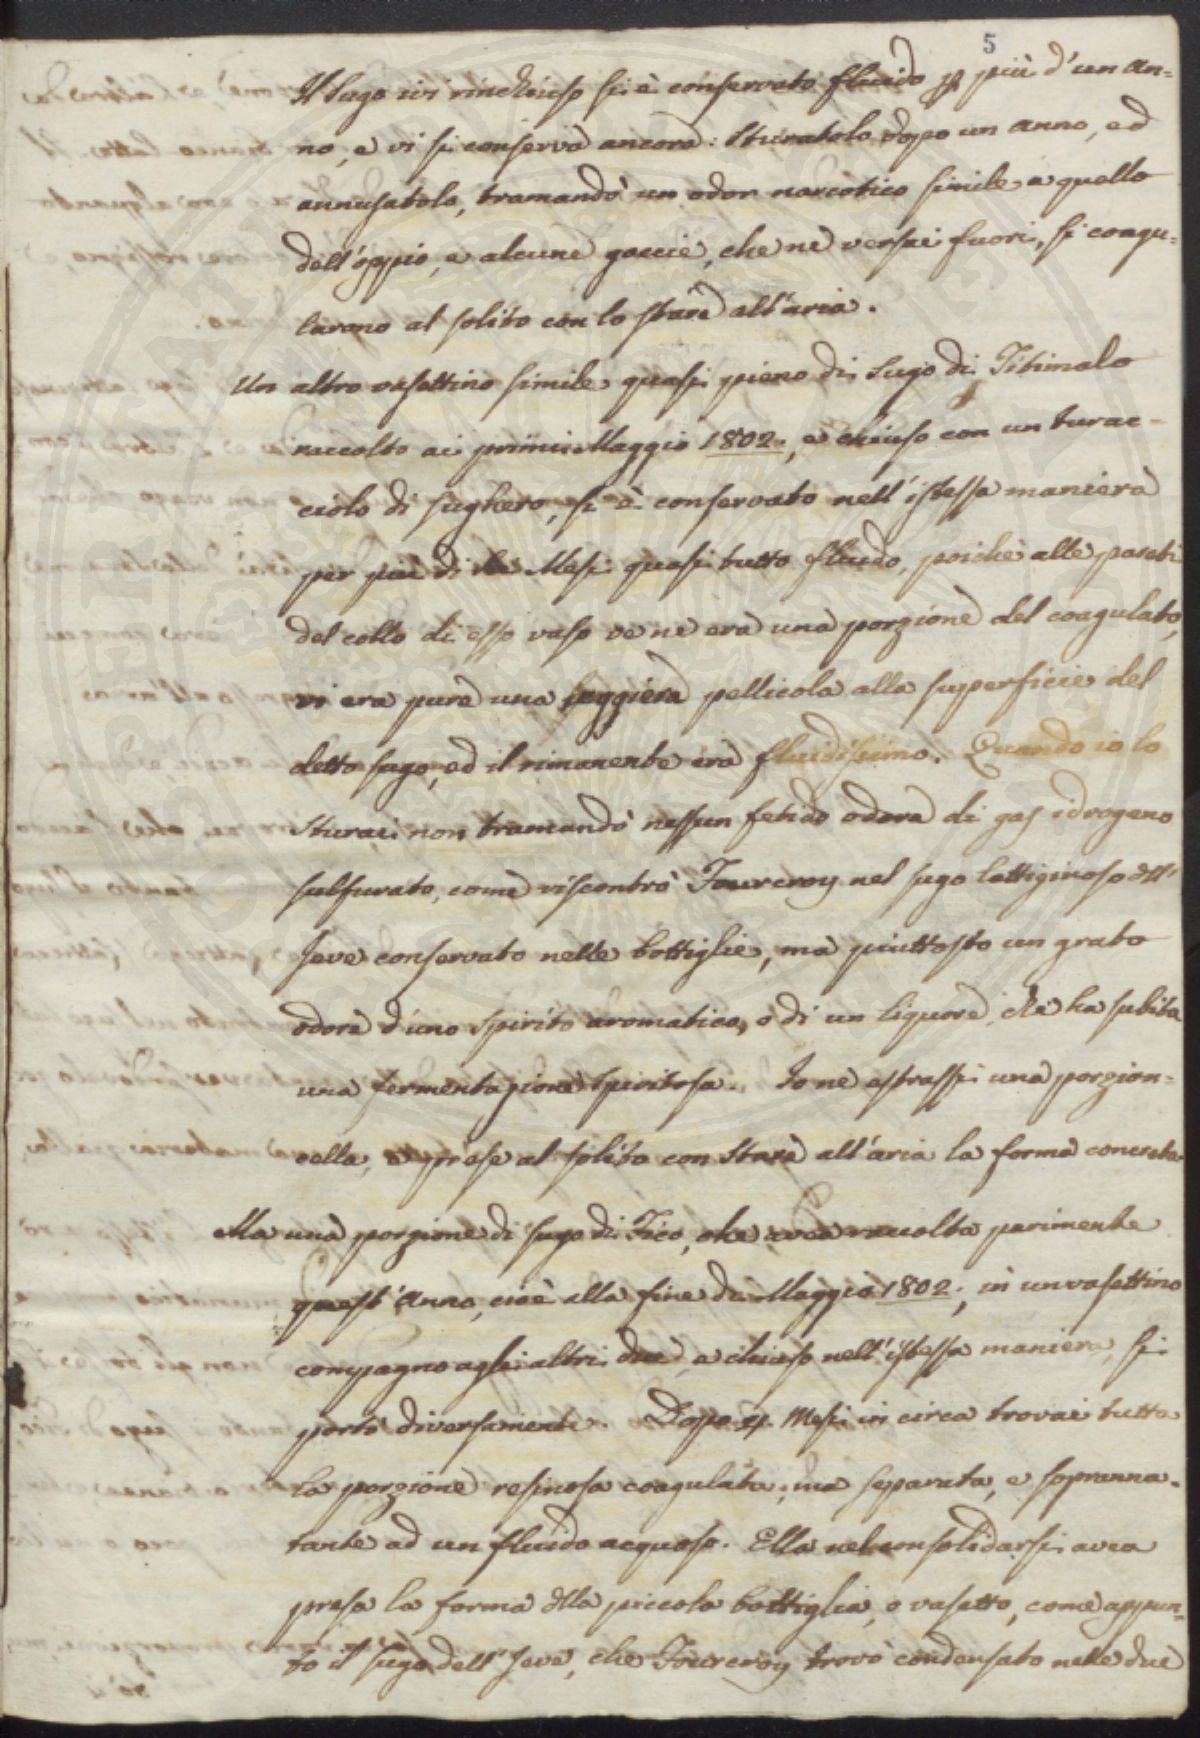 5
Il Sugo ivi rinchiuso si è conservato fluido p più d'un an=
no, e vi si conserva ancora: Sturatolo dopo un anno, ed
annusatolo, tramandò un odor narcotico simile a quello
dell'oppio, e alcune goccie, che ne versai fuori, si coagu=
larono al solito con lo stare all'aria.
Un altro vasettino simile quasi pieno di Sugo di Titimalo
raccolto ai primi Maggio 1802., e chiuso con un turac=
ciolo di sughero, si è conservato nell'istessa maniera
per più di Mesi quasi tutto fluido, poichè alle pareti
del collo di esso vaso ve ne era una porzione del coagulato,
vi era pure una leggiera pellicola alla superficie del
detto sugo, ed il rimanente era fluidissimo. Quando io lo
Sturai non tramandò nessun fetido odore di gas idrogeno
sulfurato, come riscontrò Fourcroy nel sugo lattiginoso dll'
Jeve conservato nelle bottiglie, ma piuttosto un grato
odore d'uno spirito aromatico, o di un liquore, che ha subita
una fermentazione spiritosa. Io ne astrassi una porzion=
cella, e prese al solito con Stare all'aria la forma concreta
Ma una porzione di sugo di Fico, che avea raccolta parimente
quest'anno, cioè alla fine di Maggio 1802., in un vasettino
compagno agli altri due, e chiuso nell'istessa maniera, si
portò diversamente. Dopo Mesi in circa trovai tutta
la porzione resinosa coagulata, ma separata, e soprana=
tante ad un fluido acquoso. Ella nel consolidarsi avea
presa la forma dlla piccola bottiglia, o vasetto, come appun=
to il Sugo dell'Jeve, che Fourcroy trovò condensato nelle due